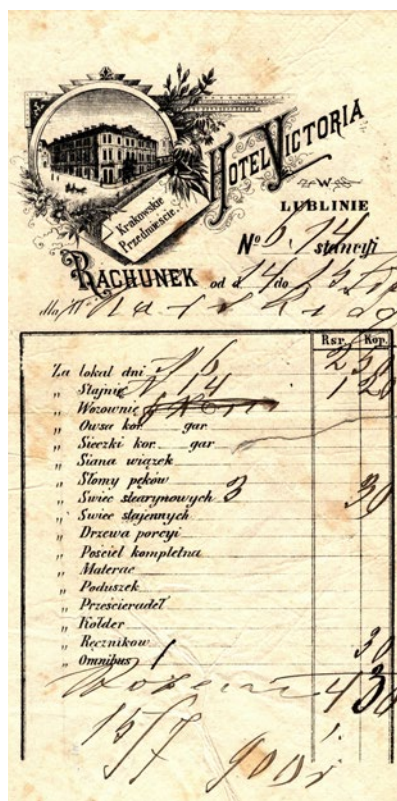 HOTEL VICTORIA
W
LUBLINIE
Krakowskie
Przedmieście.
No 6. 14 stancyi
RACHUNEK od d 14 do 15
dla
Rsr. Kop.
Za lokal dni N 6 2 50
„ Stajnie N 14 1 20
„ Wozownię
„ Owsa kor. gar
„ Sieczki kor. gar
„ Siana wiązek
„ Słomy pęków
„ Świec stearynowych 3 30
„ Świec stajennych
„ Drzewa porcyi
„ Pościel kompletna
„ Materac
„ Poduszek
„ Prześcieradeł
„ Kołder
„ Ręczników 30
„ Omnibus 1
4 30
15/7